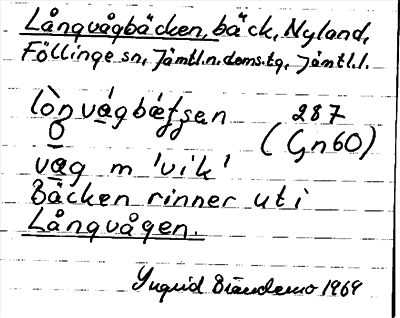 Långvågbäcken, bäck, Nyland,
Föllinge sn, Jämtl.n.doms.tg, Jämtl.l.
287
(Gn60)
våg m 'vik'
Bäcken rinner ut i
Långvågen.
Ingrid Brändemo 1969